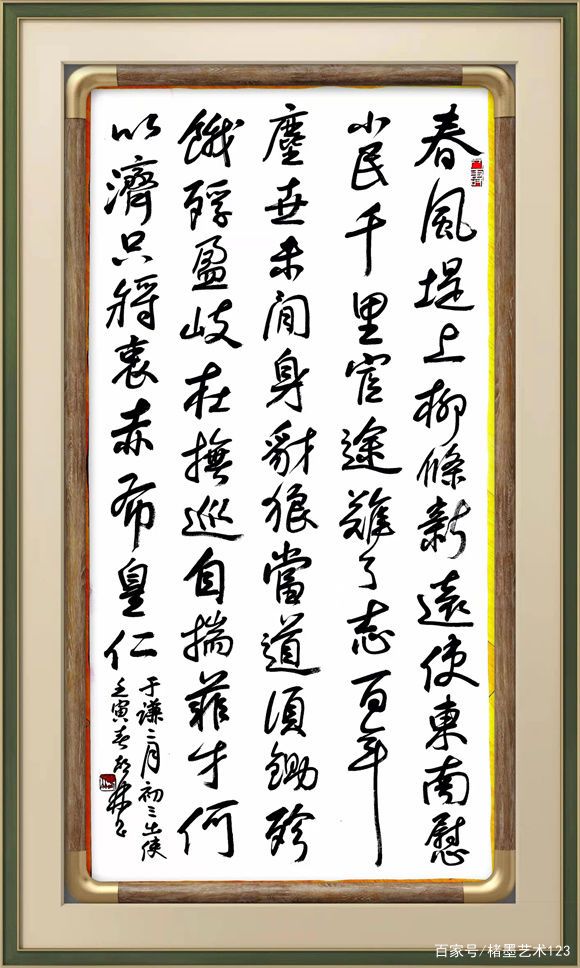 春風堤上柳條新遠使東南慰
小民千里宦途難了志百年
塵世未閒身豺狼當道須鋤殄
餓殍盈岐在撫巡自揣菲才何
以濟只將衷赤布皇仁
于謙二月初三出使
壬寅春
百家号/楮墨艺术123